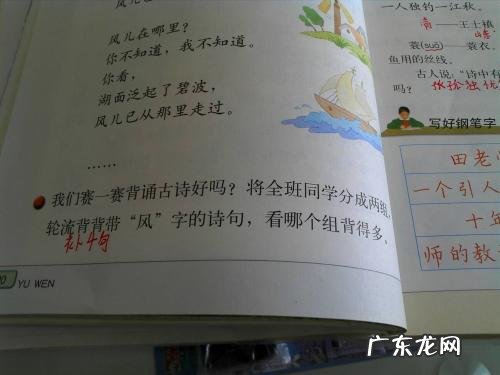 风儿在哪里？
你不知道，我不知道。
你看，
湖面泛起了碧波，
风儿已从那里走过。
……
我们赛一赛背诵古诗好吗？将全班同学分成两组，
轮流背背带“风”字的诗句，看哪个组背得多。
YU WEN
一人独钓一江秋。
——王士禛
蓑(suō)——蓑衣。
鱼用的丝线。
古人说：“诗中有
吗？
写好钢笔字
田老
一个引人
十年
师的教
广东龙网